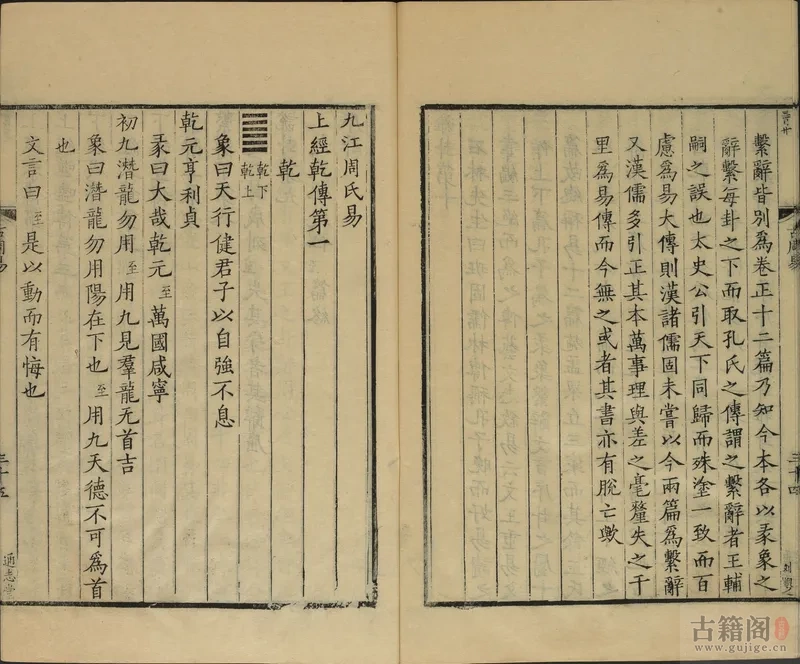 繫辭皆別爲卷正十二篇乃知今本各以彖象之
辭繫每卦之下而取孔氏之傳謂之繫辭者王輔
嗣之誤也太史公引天下同歸而殊塗一致而百
慮爲易大傳則漢諸儒固未嘗以今兩篇爲繫辭
又漢儒多引正其本萬事理與差之毫釐失之千
里爲易傳而今無之或者其書亦有脫亡歟
三十四
九江周氏易
上經乾傳第一
乾下
乾上
乾
象曰天行健君子以自強不息
乾元亨利貞
彖曰大哉乾元至萬國咸寧
初九潛龍勿用至用九見羣龍无首吉
象曰潛龍勿用陽在下也至用九天德不可爲首
也
文言曰至是以動而有悔也
三十五
通志堂
古籍阁
www.gujige.cn